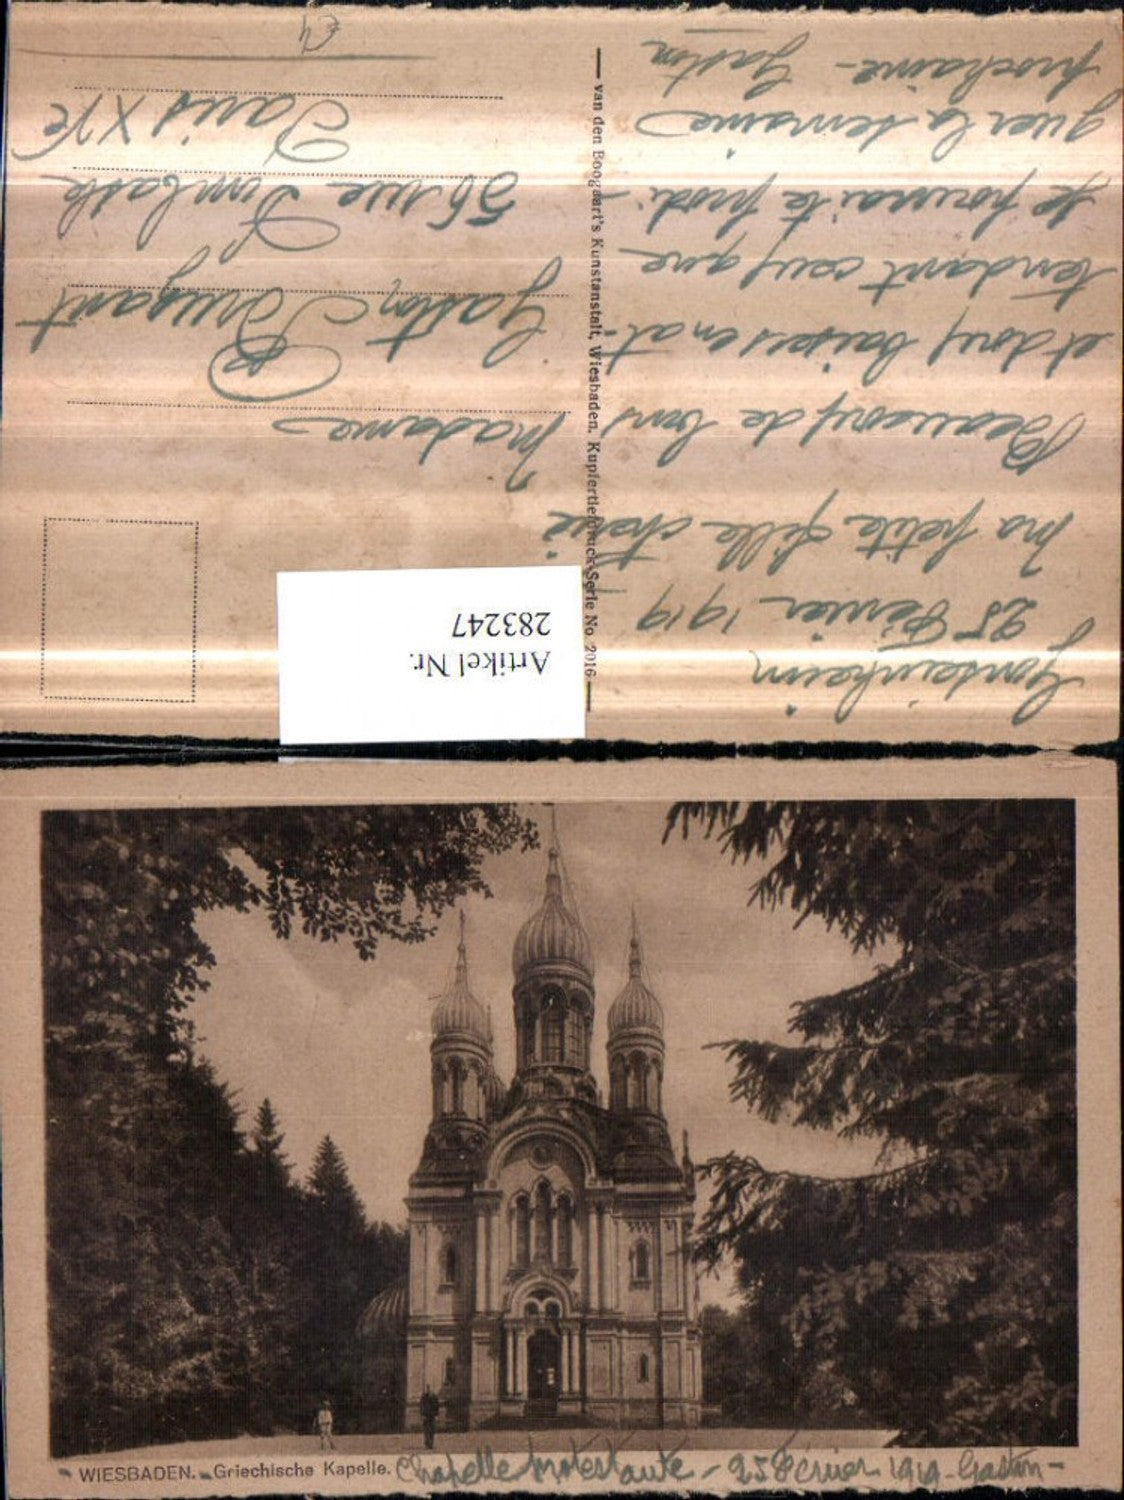 Gonsenheim
25 Février 1919
Ma petite fille chérie
Beaucoup de bons
et doux baisers en at-
tendant ceux que
je pourrai te prodi-
guer la semaine
prochaine - Gaston
van den Boogaart's Kunstanstalt, Wiesbaden. Kupfertiefdruck-Serie No. 2016
Madame
Gaston
56 rue Dombasle
Paris XVe
Artikel Nr.
283247
WIESBADEN. Griechische Kapelle. Chapelle protestante - 25 Février 1919 - Gaston -